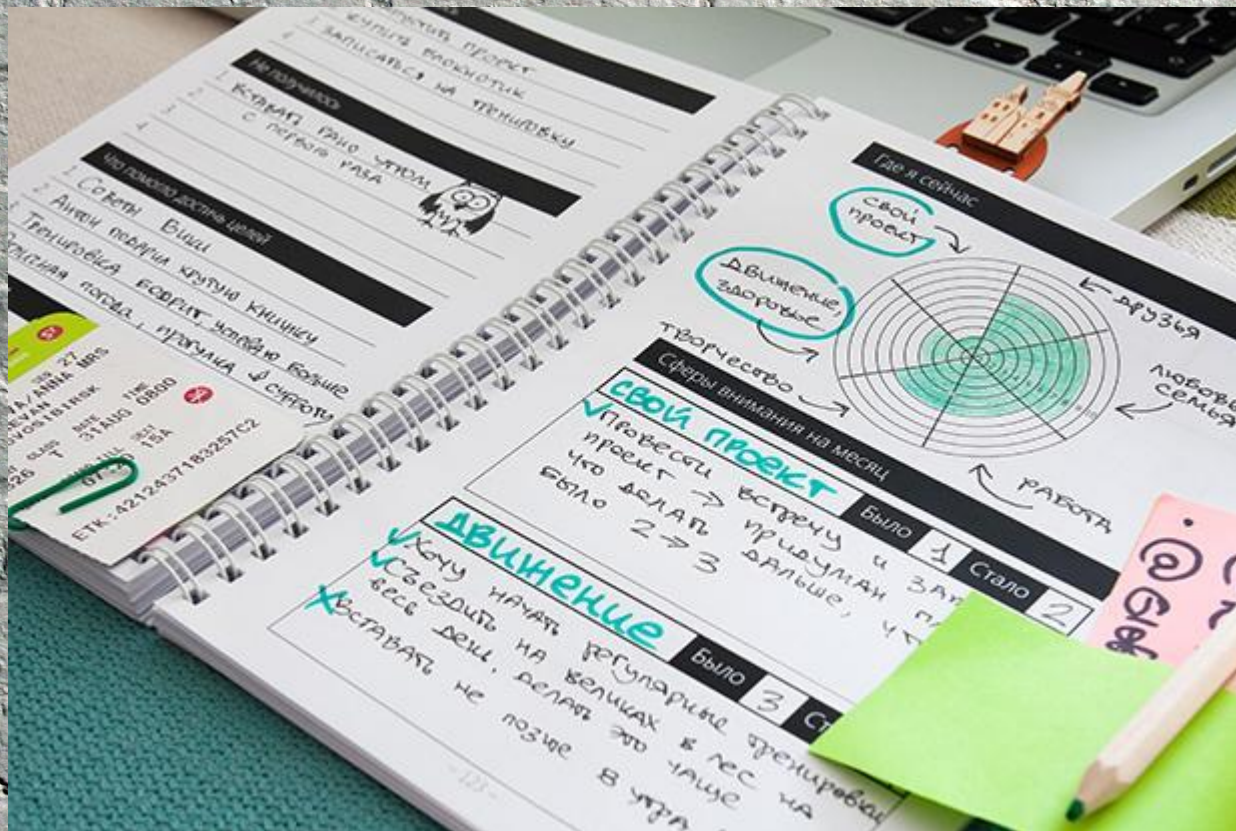 проект
купить блокнотик
записаться на тренировку
Не получилось
1. вставать рано утром
с первого раза
Что помогло достичь целей
1. Советы Вики
2. Антон подарил крутую книжку
3. Тренировка бодрит, успеваю больше
погода, прогулка в субботу
27
/ANNA MRS
31AUG 0800
15A
ETK:4212437183257C2
Где я сейчас
свой
проект
движение,
здоровье
творчество
друзья
любовь
семья
работа
Сферы внимания на месяц
свой проект
Было 1 Стало 2
Провести встречу и
проект → придуман
что делать дальше,
было 2 → 3
движение
Было 3
Хочу начать регулярные тренировки
Съездить на великах в лес на
весь день, делать это чаще
Вставать не позже 8 утра
- 123 -
@